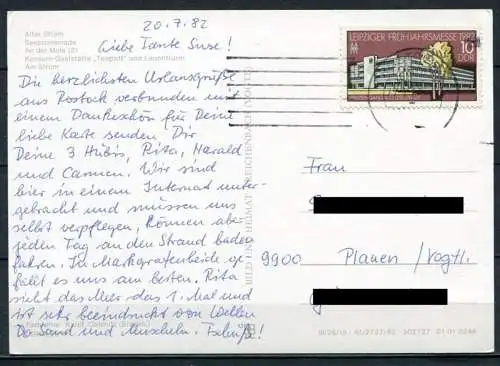 Alter Strom
Seepromenade
An der Mole (2)
Konsum-Gaststätte "Teepott" und Leuchtturm
Am Strom
20.7.82
Liebe Tante Suse!
Die herzlichsten Urlaubsgrüße
aus Rostock verbunden mit
einem Dankeschön für Deine
liebe Karte senden Dir
Deine 3 Hübis, Rita, Harald
und Carmen. Wir sind
hier in einem Internat unter-
gebracht und müssen uns
selbst verpflegen, können aber
jeden Tag an den Strand baden
fahren. In Markgrafenheide ge-
fällt es uns am besten. Rita
sieht das Meer das 1. Mal und
ist sehr beeindruckt von Wellen
Sand und Muscheln. Tschüß!
BILD UND HEIMAT REICHENBACH (VOGTL)
LEIPZIGER FRÜHJAHRSMESSE 1982
10
DDR
Frau
9900 Plauen/Vogtl.